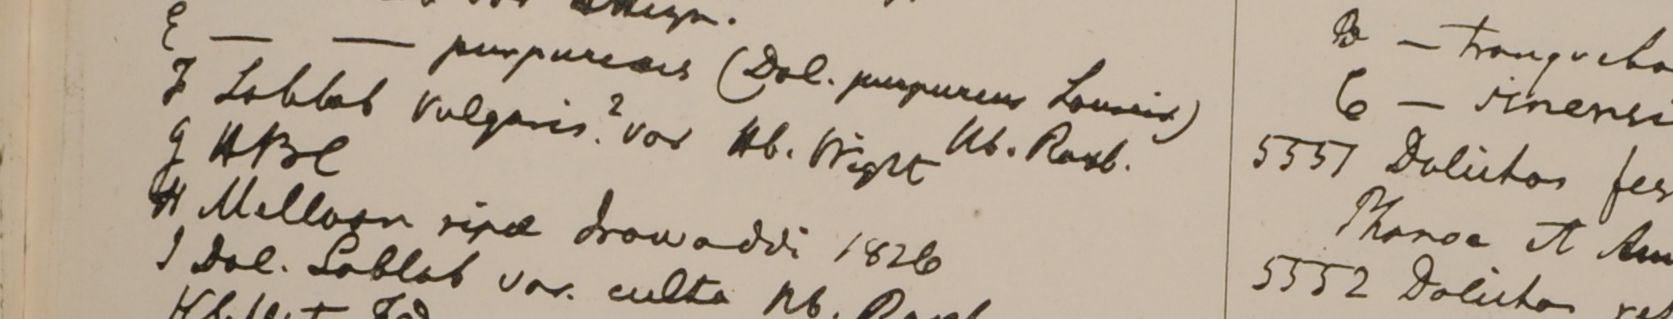 E — — purpureus (Dol. purpureus Loureir) Hb. Roxb.
F Lablab vulgaris? var Hb. Wight
G HBC
H Melloon ripæ Irawaddi 1826
I Dol. Lablab var. culta Hb. Roxb.
B — tranqueba
C — sinensi
5551 Dolichos
Phanoe et Am
5552 Dolichos